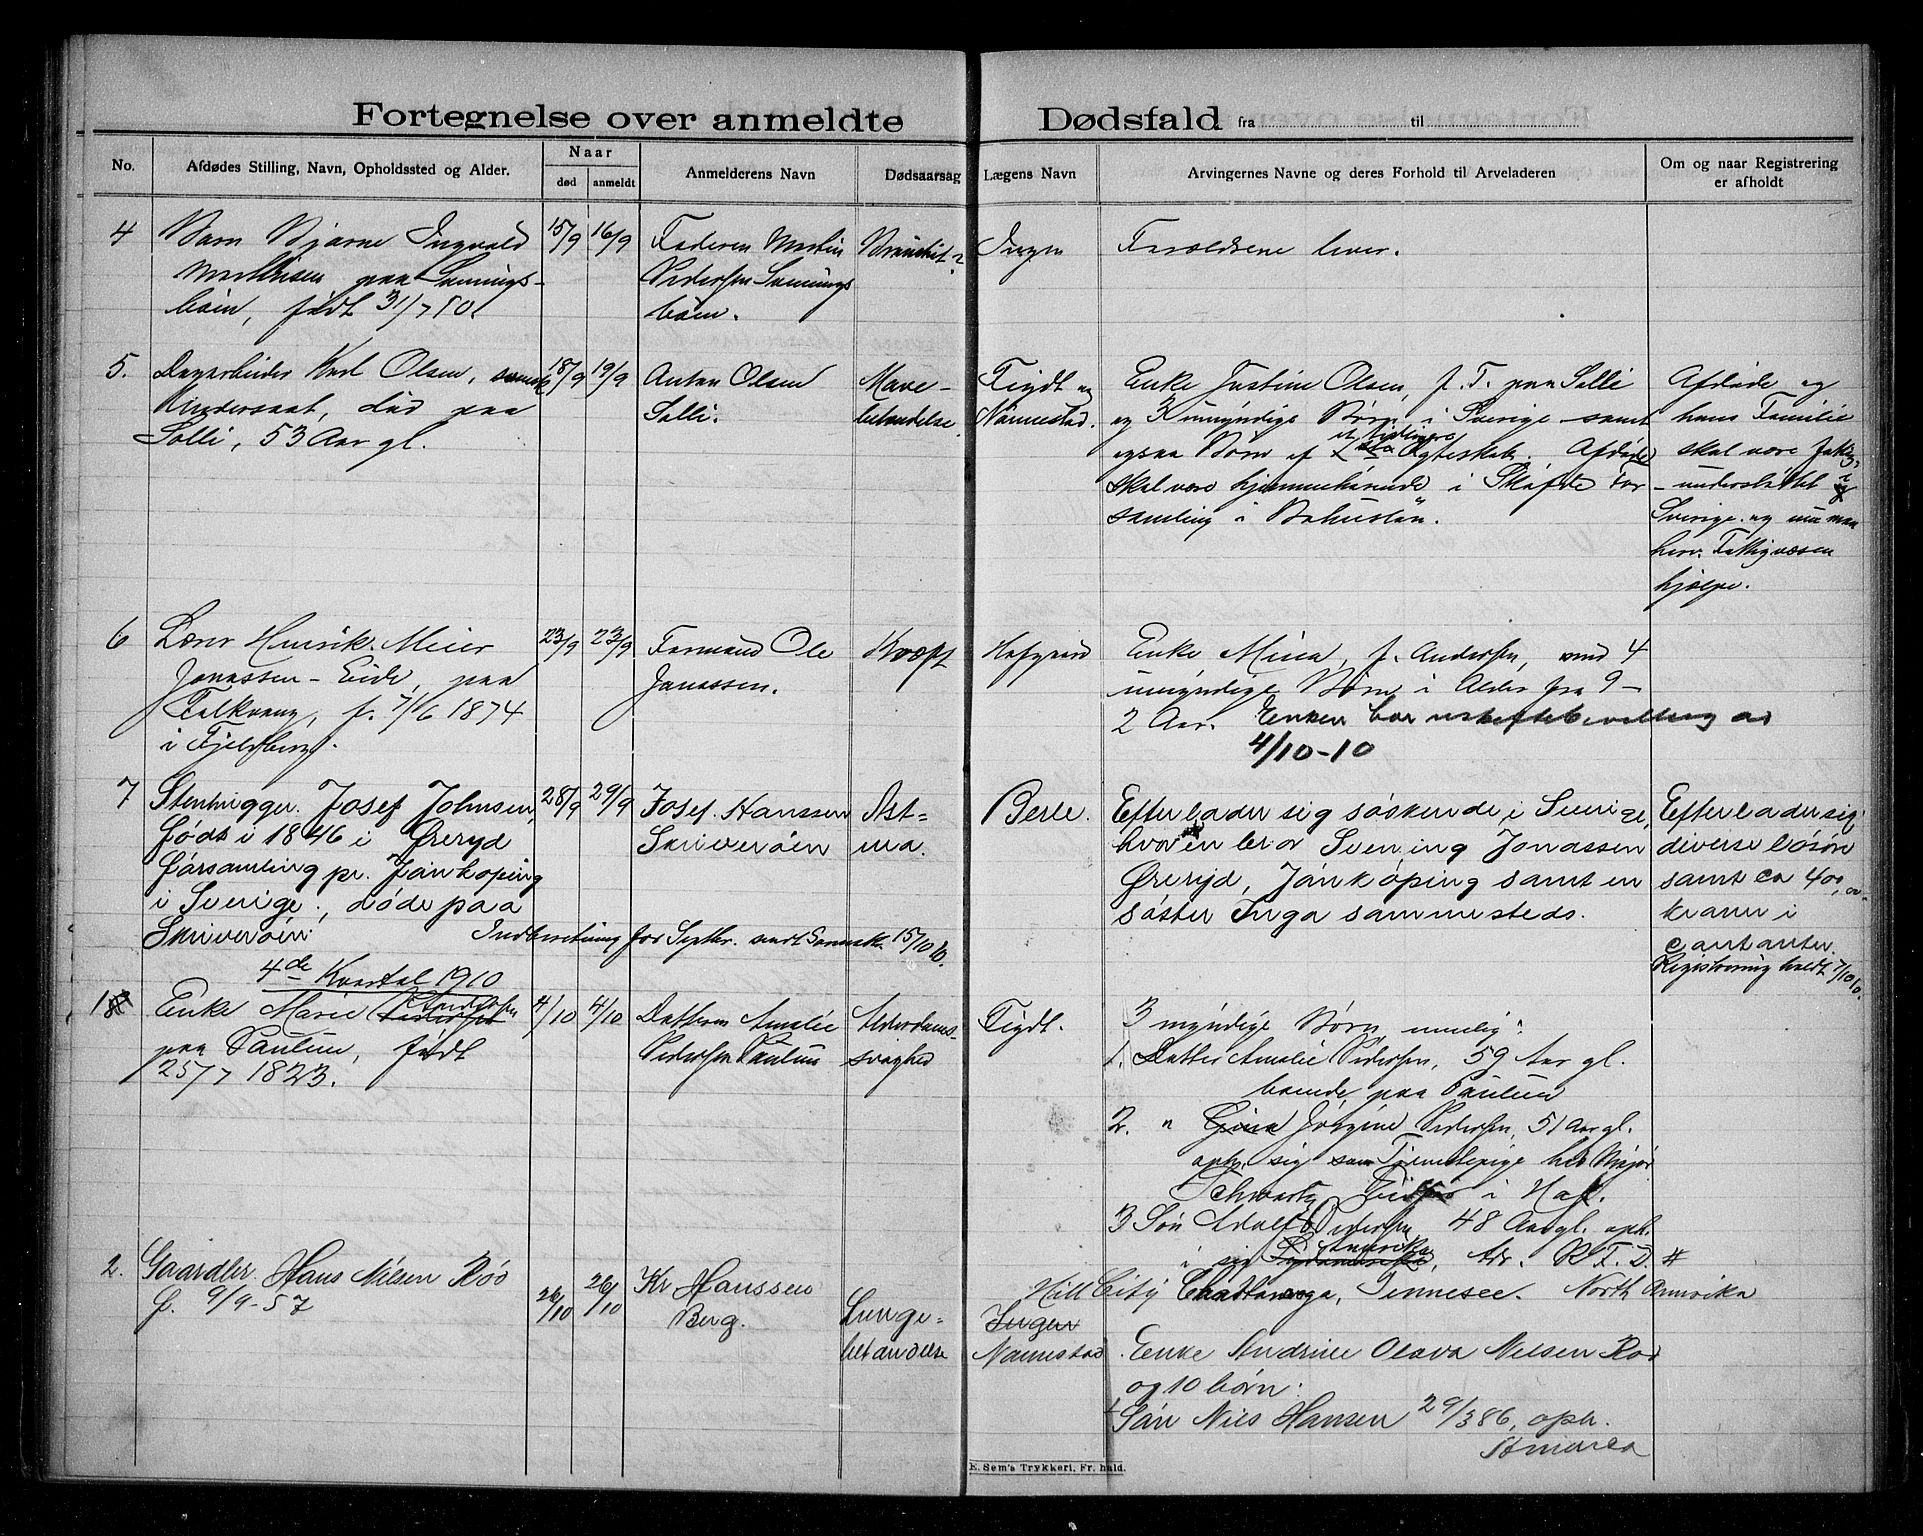 Fortegnelse over anmeldte Dødsfald fra til
No.
Afdødes Stilling, Navn, Opholdssted og Alder.
Naar
død
anmeldt
Anmelderens Navn
Dødsaarsag
Lægens Navn
Arvingernes Navne og deres Forhold til Arveladeren
Om og naar Registrering
er afholdt
4
Barn Bjarne Ingvald
paa
født 31/7 10.
15/9
16/9
Faderen Martin
Pedersen
Ingen
Forældrene lever.
5.
Dagarbeider Karl Olsen, svensk
Undersaat, død paa
Solli, 53 Aar gl.
18/9
19/9
Anton Olsen
Solli.
Mave-
betændelse.
Figdt og
Nannestad.
Enke Justine Olsen, f. T. paa Solli
og 3 umyndige Børn i Sverige samt
ogsaa Børn af et tidligere Ægteskab. Afdøde
skal være hjemmehørende i Skafte For
samling i Bohuslän.
Afdøde og
hans Familie
skal være fattig-
understøttet i
Sverige og nu
herv. Fattigvæsen
hjælpe.
6
Lærer Henrik Meier
Jonassen - Eide, paa
Falkvang, f. 7/6 1874
i Fjeldberg.
23/9
23/9
Formand Ole
Jonassen.
Kræft
Hafgrød
Enke Mina, f. Andersen, med 4
umyndige Børn i Alder fra 9-
2 Aar. Enken har uskiftebevilling av
4/10-10
7
Stenhugger Josef Johnsen,
født i 1846 i Øreryd
forsamling pr. Jönkoping
i Sverige, døde paa
Skriverøen.
28/9
29/9
Josef Hanssen
Skriverøen
Ast-
ma.
Berle.
Efterlader sig søskende i Sverige,
hvoren bror Svening Jonassen
Øreryd, Jönköping samt en
søster Inga sammesteds.
Efterlader sig
diverse løsøre
samt ca 400,
kroner i
contanter.
Registrering holdt 7/10 10.
Indberetning for Septbr. sendt 15/10 10.
4de Kvartal 1910
1
Enke Marie
paa Paulun, født
25/7 1823.
4/10
4/10
Datteren Amalie
Pedersen Paulun
Alderdoms-
svaghed
Figdt.
3 myndige Børn nemlig:
1. Datter Amalie Pedersen, 59 Aar gl.
boende paa Paulun
2. " Gina Jørgine Pedersen, 51 Aar gl.
oph. sig som Tjenestepige hos Major
Schwartz, i Hof.
3 Søn Adolf Pedersen 48 Aar gl. oph.
i sig Amerika, Adr. R. F. D. #
Hill City Chattanooga, Tennesee. North Amerika
2.
Gaardbr. Hans Nilsen Röd
f. 9/9-57
26/10
26/10
Kr Hanssen
Berg.
Lunge-
betændelse
Ingen
Nannestad
Enke Andrine Olava Nilsen Rød
og 10 børn:
1 Søn Nils Hansen 29/3 86, oph.
Amerika
E. Sem's Trykkeri, Fr. hald.